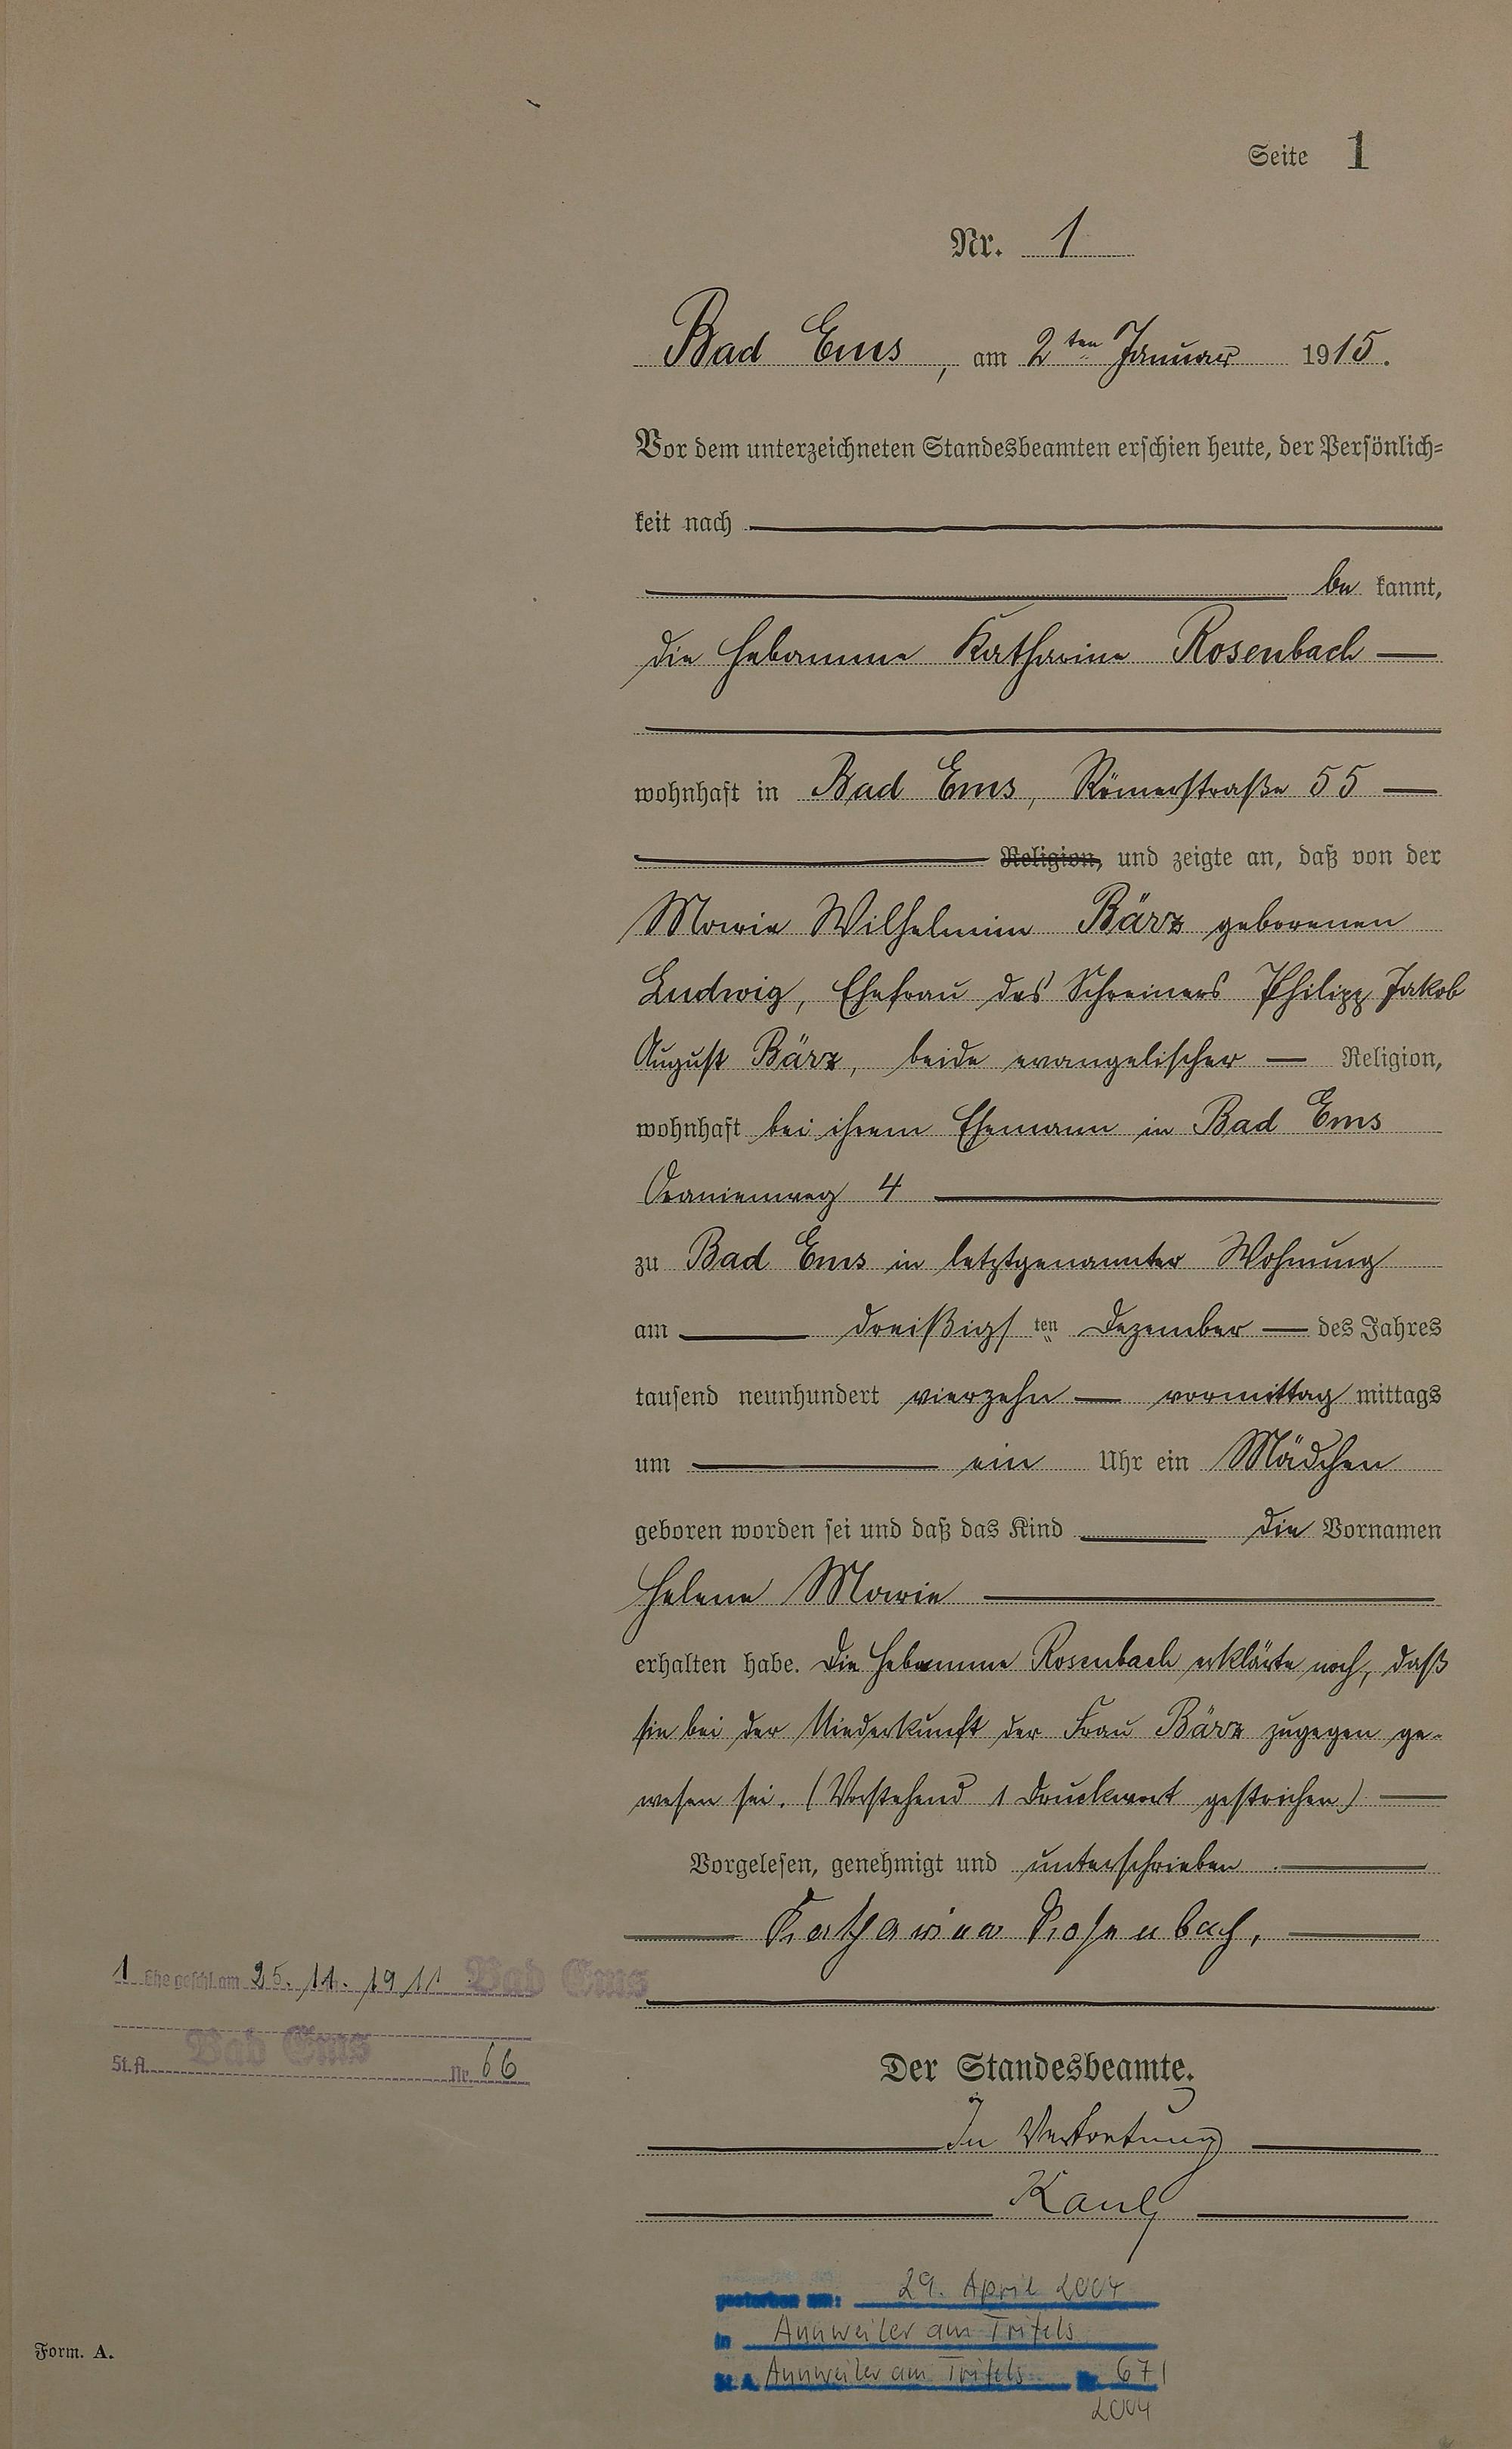 Seite 1
Nr. 1
Bad Ems, am 2ten Januar 1915.
Vor dem unterzeichneten Standesbeamten erschien heute, der Persönlich-
keit nach
be kannt,
die Hebamme Katharine Rosenbach
wohnhaft in Bad Ems, Römerstraße 55
Religion, und zeigte an, daß von der
Marie Wilhelmine Bärz geborenen
Ludwig, Ehefrau des Schreiners Philipp Jakob
August Bärz, beide evangelischer Religion,
wohnhaft bei ihrem Ehemann in Bad Ems
Oranienweg 4
zu Bad Ems in letztgenannter Wohnung
am dreißigsten Dezember des Jahres
tausend neunhundert vierzehn vormittag mittags
um ein Uhr ein Mädchen
geboren worden sei und daß das Kind die Vornamen
Helene Marie
erhalten habe. Die Hebamme Rosenbach erklärte noch, daß
sie bei der Niederkunft der Frau Bärz zugegen ge-
wesen sei. (Vorstehend 1 Druckwort gestrichen)
Vorgelesen, genehmigt und unterschrieben.
Katharina Rosenbach,
1 Ehe geschl. am 25. 11. Bad Ems
St. A. Bad Ems Nr. 66
Der Standesbeamte.
In Vertretung
gestorben am: 29. April 2004
in Annweiler am Trifels
St. A. Annweiler am Trifels Nr. 67/
2004
Form. A.